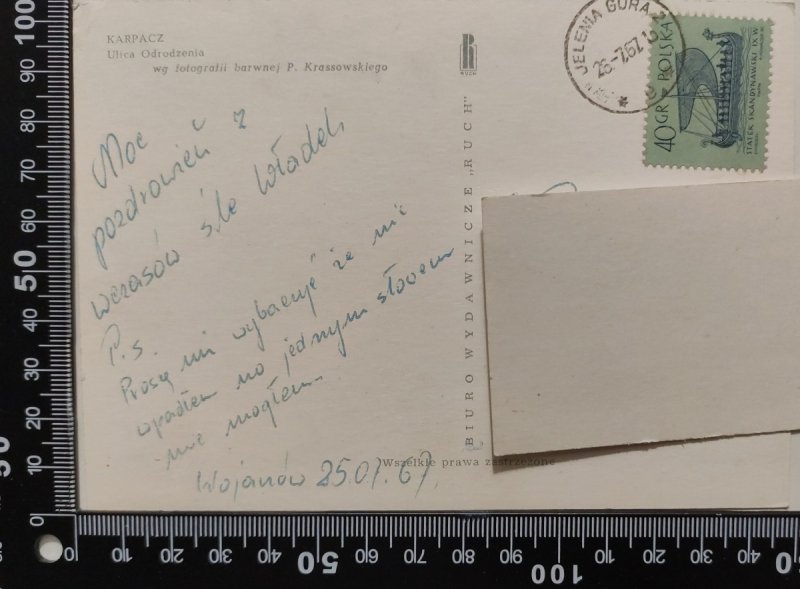 KARPACZ
Ulica Odrodzenia
wg fotografii barwnej P. Krassowskiego
RUCH
BIURO WYDAWNICZE „RUCH"
JELENIA GÓRA
25-7.67
40 GR POLSKA
STATEK SKANDYNAWSKI IX W.
Moc
pozdrowień z
wczasów śle Władek
P.s.
Proszę mi wybaczyć że nie
wpadłem no jednym słowem
nie mogłem.
Wojanów 25.07.67.
Wszelkie prawa zastrzeżone
100
90
80
70
60
50
40
30
20
10
0
0
10
20
30
40
50
60
70
80
90
100
10
20
30
40
50